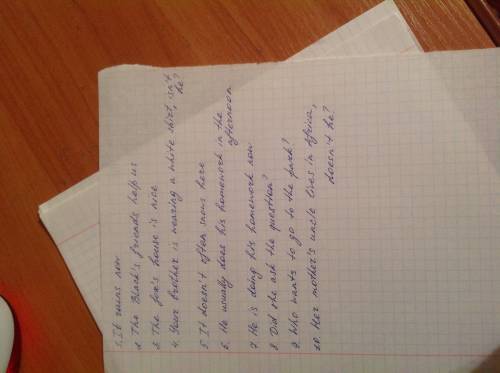 1. It rains now
2. The Black's friends help us
3. The fox's house is nice
4. Your brother is wearing a white shirt, isn't
he?
5 It doesn't often snows here
6. He usually does his homework in the
afternoon
7. He is doing his homework now
8. Did she ask the question?
9. Who wants to go to the park?
10. Her mother's uncle lives in Africa,
doesn't he?